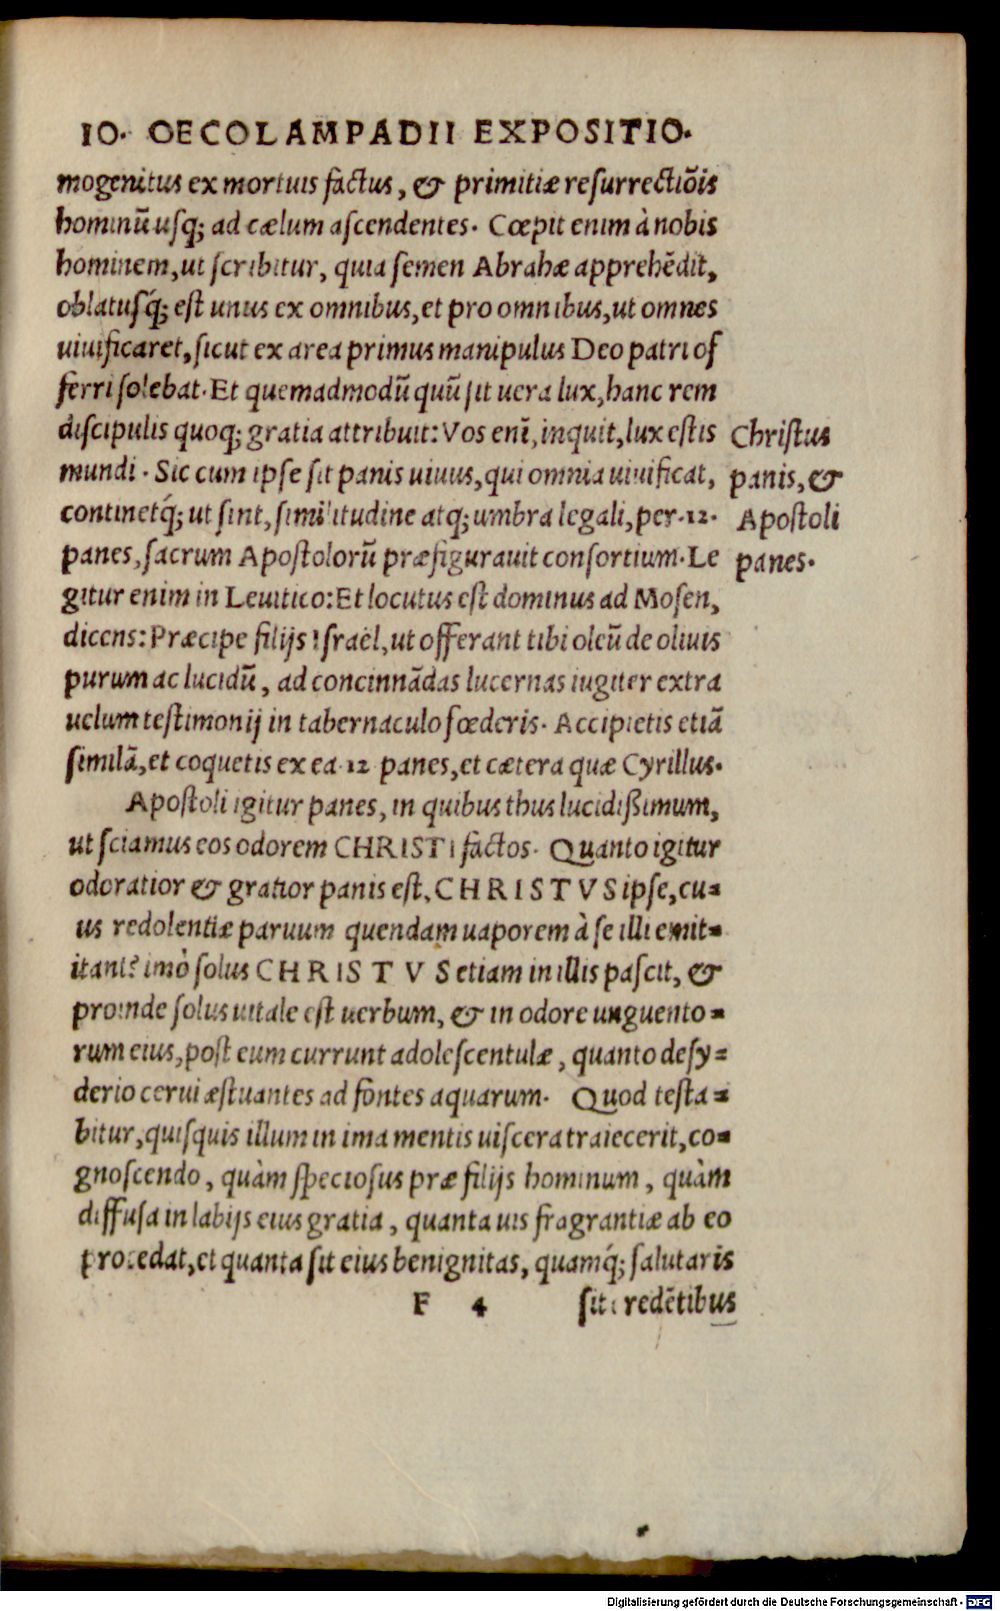 IO. OECOLAMPADII EXPOSITIO.
mogenitus ex mortuis factus, & primitiæ resurrectiõis
hominũ usq; ad cælum ascendentes. Cœpit enim à nobis
hominem, ut scribitur, quia semen Abrahæ apprehẽdit,
oblatusq́; est unus ex omnibus, et pro omnibus, ut omnes
uiuificaret, sicut ex area primus manipulus Deo patri of
ferri solebat. Et quemadmodũ quũ sit uera lux, hanc rem
discipulis quoq; gratia attribuit: Vos enĩ, inquit, lux estis
mundi. Sic cum ipse sit panis uiuus, qui omnia uiuificat,
continetq́; ut sint, similitudine atq; umbra legali, per .12.
panes, sacrum Apostolorũ præfigurauit consortium. Le
gitur enim in Leuitico: Et locutus est dominus ad Mosen,
dicens: Præcipe filijs Israël, ut offerant tibi oleũ de oliuis
purum ac lucidũ, ad concinnãdas lucernas iugiter extra
uelum testimonij in tabernaculo fœderis. Accipietis etiã
similã, et coquetis ex ea .12 panes, et cætera quæ Cyrillus.
Apostoli igitur panes, in quibus thus lucidißimum,
ut sciamus eos odorem CHRISTI factos. Quanto igitur
odoratior & gratior panis est, CHRISTVS ipse, cu-
us redolentiæ paruum quendam uaporem à se illi emit-
itant? imò solus CHRISTVS etiam in illis pascit, &
proinde solus uitale est uerbum, & in odore unguento-
rum eius, post eum currunt adolescentulæ, quanto desy-
derio cerui æstuantes ad fontes aquarum. Quod testa-
bitur, quisquis illum in ima mentis uiscera traiecerit, co-
gnoscendo, quàm speciosus præ filijs hominum, quàm
diffusa in labijs eius gratia, quanta uis fragrantiæ ab eo
procedat, et quanta sit eius benignitas, quamq́; salutaris
F 4 sit redẽtibus
Christus
panis, &
Apostoli
panes.
Digitalisierung gefördert durch die Deutsche Forschungsgemeinschaft - DFG